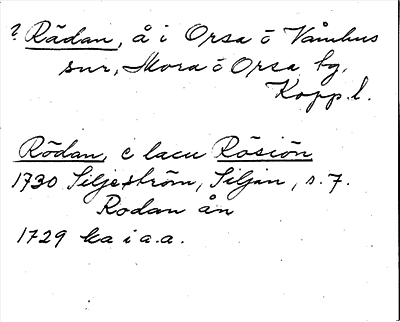 ? Rädan, å i Orsa o Våmhus
snr, Mora o Orsa tg,
Kopp. l.
Rödan, c lacu Rösiön
1730 Siljeström, Siljan, s. 7.
Rodan ån
1729 ka i a.a.